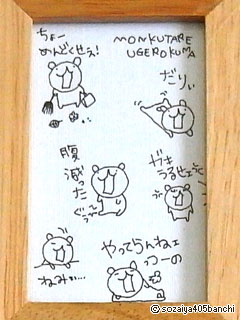 ちょー
めんどくせぇ!
MONKUTARE
UGEROKUMA
だりぃ
腹
減った
ぐぅ〜
ガキ
うるせェっ
ねみぃ…
やってらんねェ
っつーの
© sozaiya405banchi